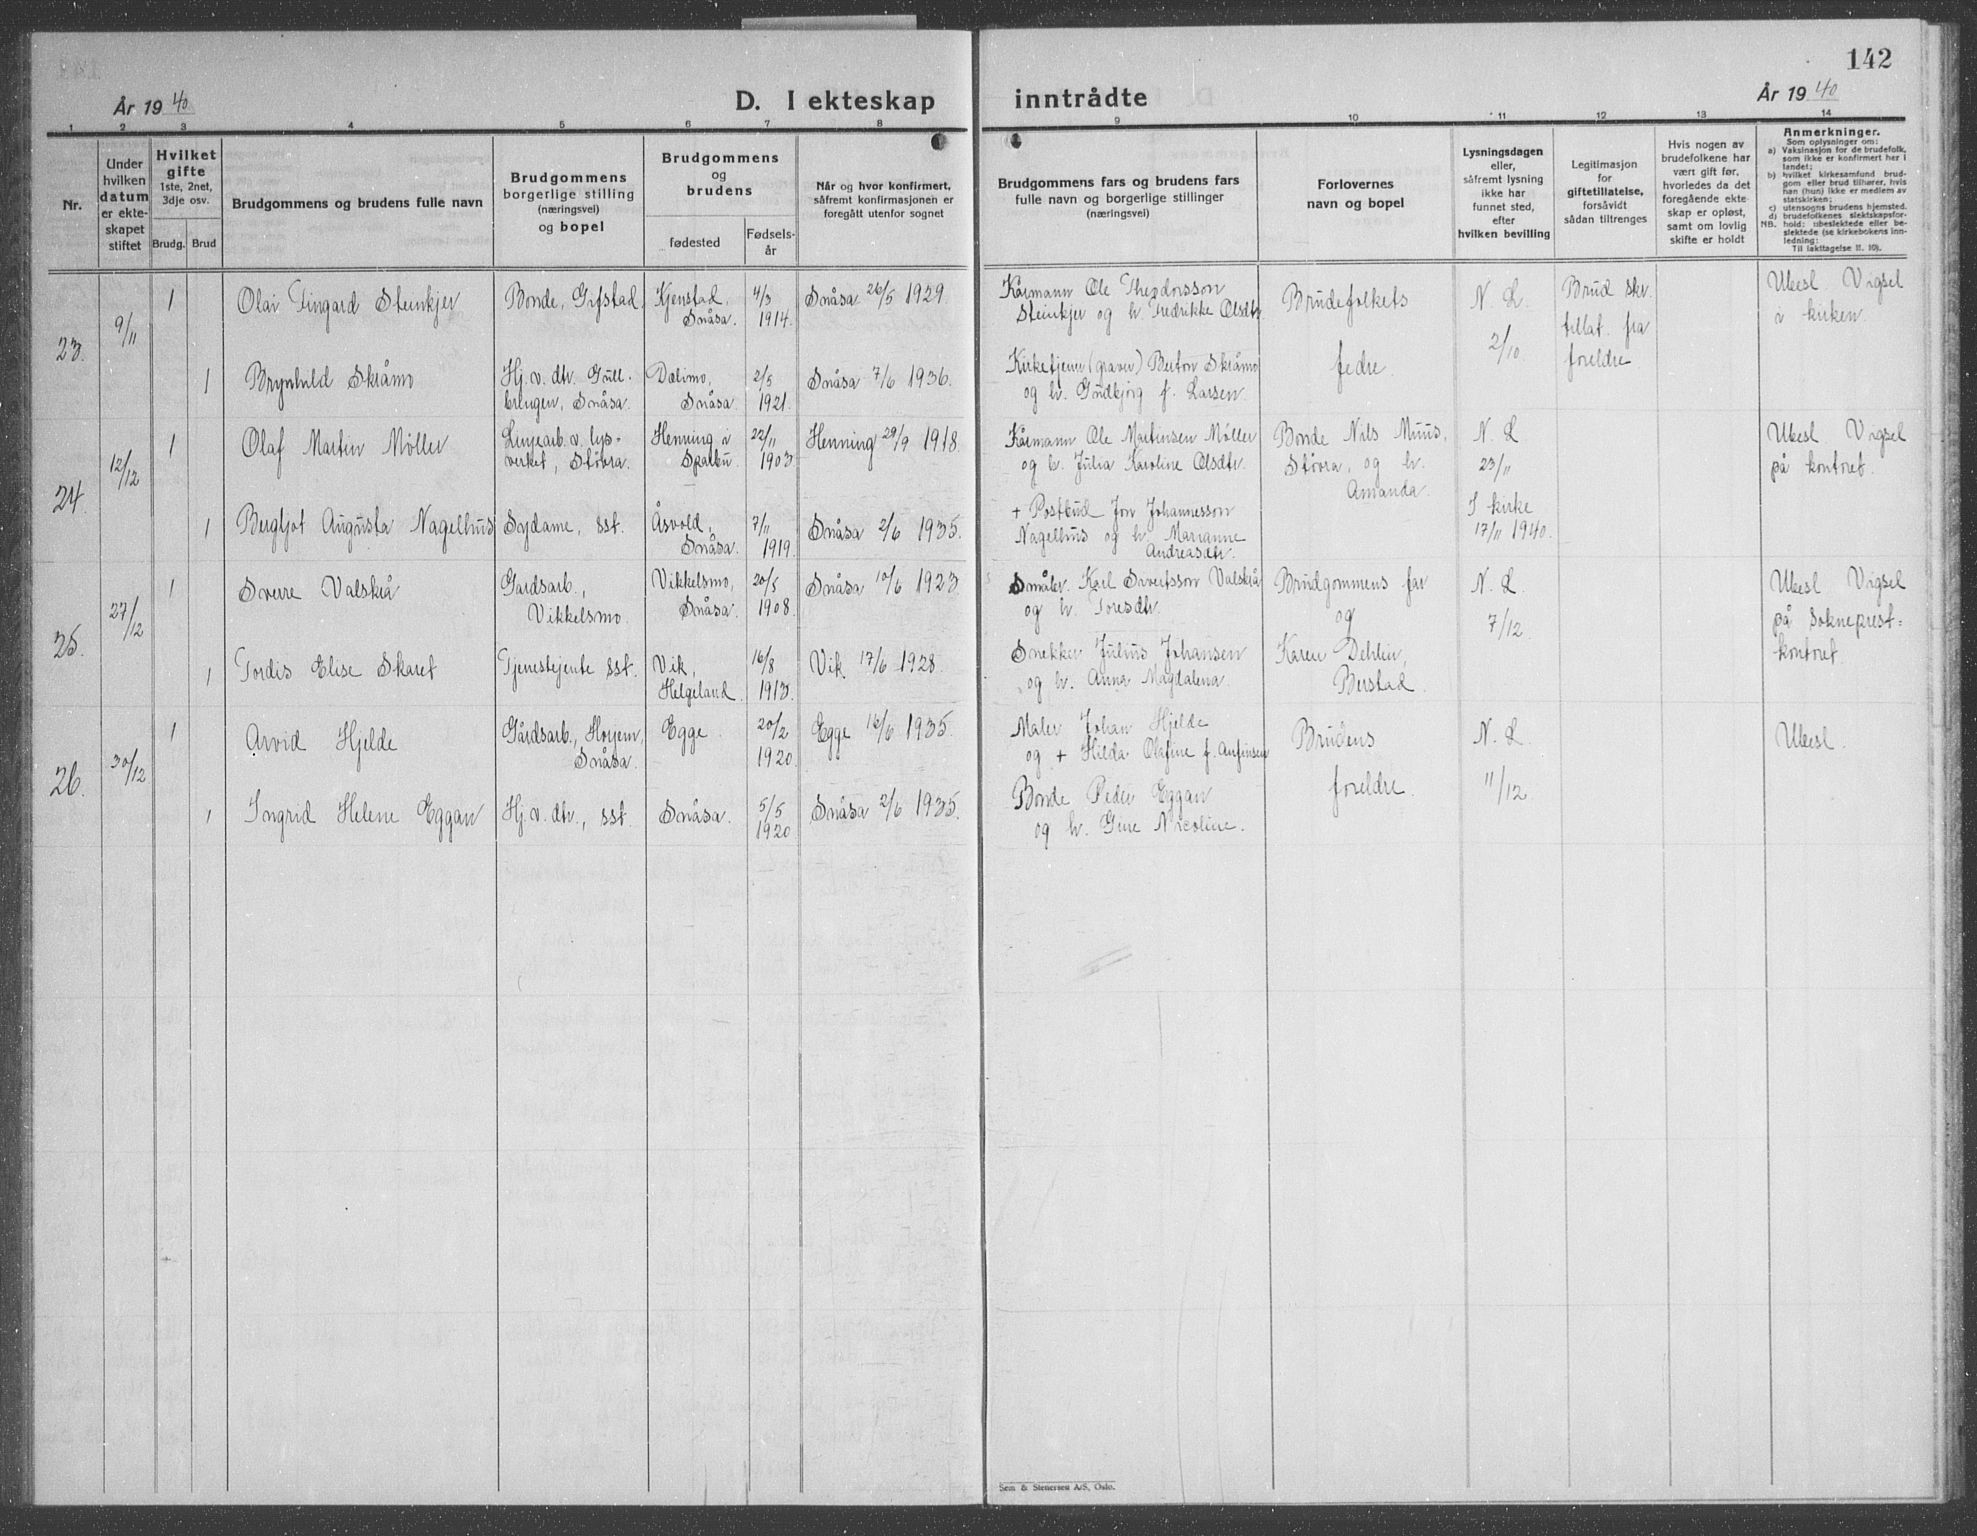 142
År 1940
D. I ekteskap inntrådte
År 1940
1 2 3 4 5 6 7 8 9 10 11 12 13 14
Nr.
Under
hvilken
datum
er ekte-
skapet
stiftet
Hvilket
gifte
1ste, 2net,
3dje osv.
Brudg. Brud
Brudgommens og brudens fulle navn
Brudgommens
borgerlige stilling
(næringsvei)
og bopel
Brudgommens
og
brudens
fødested
Fødsels-
år
Når og hvor konfirmert,
såfremt konfirmasjonen er
foregått utenfor sognet
Brudgommens fars og brudens fars
fulle navn og borgerlige stillinger
(næringsvei)
Forlovernes
navn og bopel
Lysningsdagen
eller,
såfremt lysning
ikke har
funnet sted,
efter
hvilken bevilling
Legitimasjon
for
giftetillatelse,
forsåvidt
sådan tiltrenges
Hvis nogen av
brudefolkene har
vært gift før,
hvorledes da det
foregående ekte-
skap er opløst,
samt om lovlig
skifte er holdt
Anmerkninger.
Som oplysninger om:
a) Vaksinasjon for de brudefolk,
som ikke er konfirmert her i
landet;
b) hvilket kirkesamfund brud-
gom eller brud tilhører, hvis
han (hun) ikke er medlem av
statskirken;
c) utensogns brudens hjemsted.
d) brudefolkenes slektskapsfor-
hold: ubeslektede eller be-
slektede (se kirkebokens inn-
ledning;
NB. Til iakttagelse II. 10).
23.
9/11
1
Olai Fingard Steinkjer
Bonde, Gifstad.
Kjenstad,
Snåsa.
4/3
1914.
Snåsa 26/5 1929.
Kårmann Ole Theodorsson
Steinkjer og h. Fredrikke Olsdtr.
Brudefolkets
fedre.
N. L.
2/10.
Brud skr.
tillat. fra
foreldre.
Ubesl. Vigsel
i kirken.
1
Brynhild Skråmo
Hj.v. dtr. Gull-
bringen, Snåsa.
Dalimo,
Snåsa.
2/5
1921.
Snåsa 7/6 1936.
Kirketjener (graver) Berton Skråmo
og h. Gudbjørg f. Larsen.
24.
12/12
1
Olaf Martin Möller
Linjearb. v. lys-
verket, Stövra.
Henning i
Sparbu.
22/11
1903
Henning 29/9 1918.
Kårmann Ole Martinsen Möller
og h. Julia Karoline Olsdtr.
Bonde Nils Muus,
Stövra, og h.
Amanda.
N. L
23/11
I kirke
17/11 1940.
Ubesl. Vigsel
på kontoret.
1
Bergljot Augusta Nagelhus
Sydame, sst.
Åsvold,
Snåsa.
7/11
1919.
Snåsa 2/6 1935.
+ Postbud Jon Johannesson
Nagelhus og h. Marianne
Andreasdtr.
25.
27/12
1
Sverre Valskrå
Gardsarb.,
Vikkelsmo.
Vikkelsmo,
Snåsa.
20/5
1908.
Snåsa 10/6 1923.
Småbr. Karl Sivertsson Valskrå
og h. Toresdtr.
Brudgommens far
og
Karen Dehlin,
Berstad.
N. L.
7/12.
Ubesl. Vigsel
på Sokneprest-
kontoret.
1
Tordis Elise Skaret
Tjenestejente sst.
Vik,
Helgeland.
16/8
1913.
Vik. 17/6 1928.
Snekker Julius Johansen
og h. Anna Magdalena.
26.
30/12
1
Arvid Hjelde
Gårdsarb., Hojem,
Snåsa.
Egge.
20/2
1920.
Egge 16/6 1935.
Maler Johan Hjelde
og + Hilda Olafine f. Anfinsen
Brudens
foreldre.
N. L
11/12
Ubesl.
1
Ingrid Helene Eggan
Hj.v. dtr., sst.
Snåsa.
5/5
1920.
Snåsa 2/6 1935.
Bonde Peder Eggan
og h. Gine Nicoline.
Sem & Stenersen A/S, Oslo.